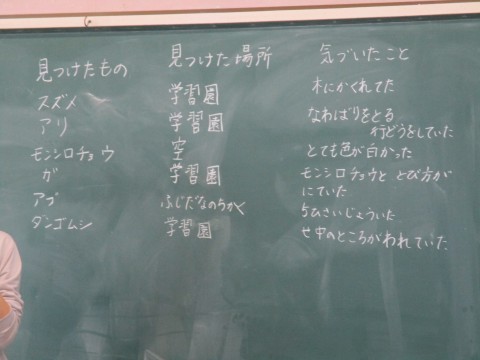 見つけたもの 見つけた場所 気づいたこと
スズメ 学習園 木にかくれてた
アリ 学習園 なわばりをとる
行どうをしていた
モンシロチョウ 空 とても色が白かった
ガ 学習園 モンシロチョウと とび方が
にていた
アブ ふじだなのちかく 5ひきいじょういた
ダンゴムシ 学習園 せ中のところがわれていた